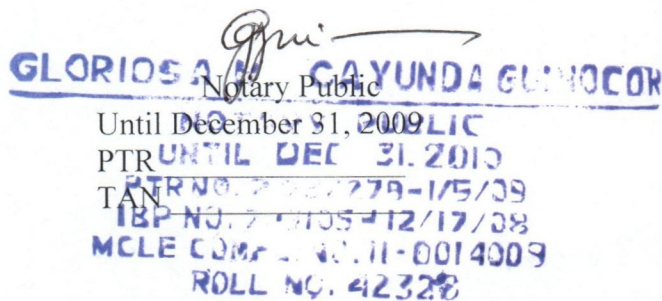 GLORIOSA CAYUNDA
Notary Public
Until December 31, 2009
PUBLIC
PTR
UNTIL DEC 31. 2010
TAN
PTR NO. 279-1/5/09
IBP NO. 12/17/08
MCLE NO. II-0014009
ROLL NO. 42328